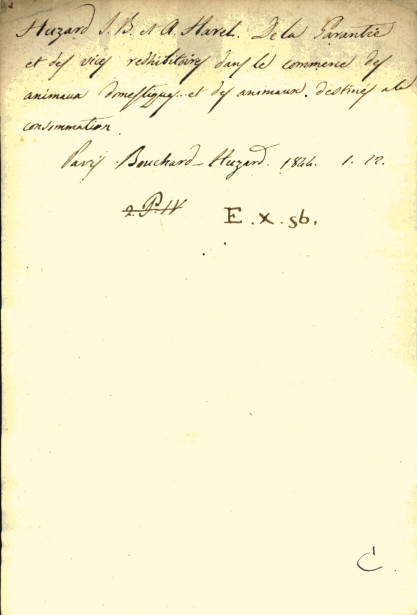 Huzard J. B. et A. Harel. De la Garantie
et des vices redhibitoires dans le commerce des
animaux domestiques et des animaux destinés a la
consommation.
Paris Bouchard-Huzard. 1844. 1. 12.
2. P. IV
E. X. 56.
C